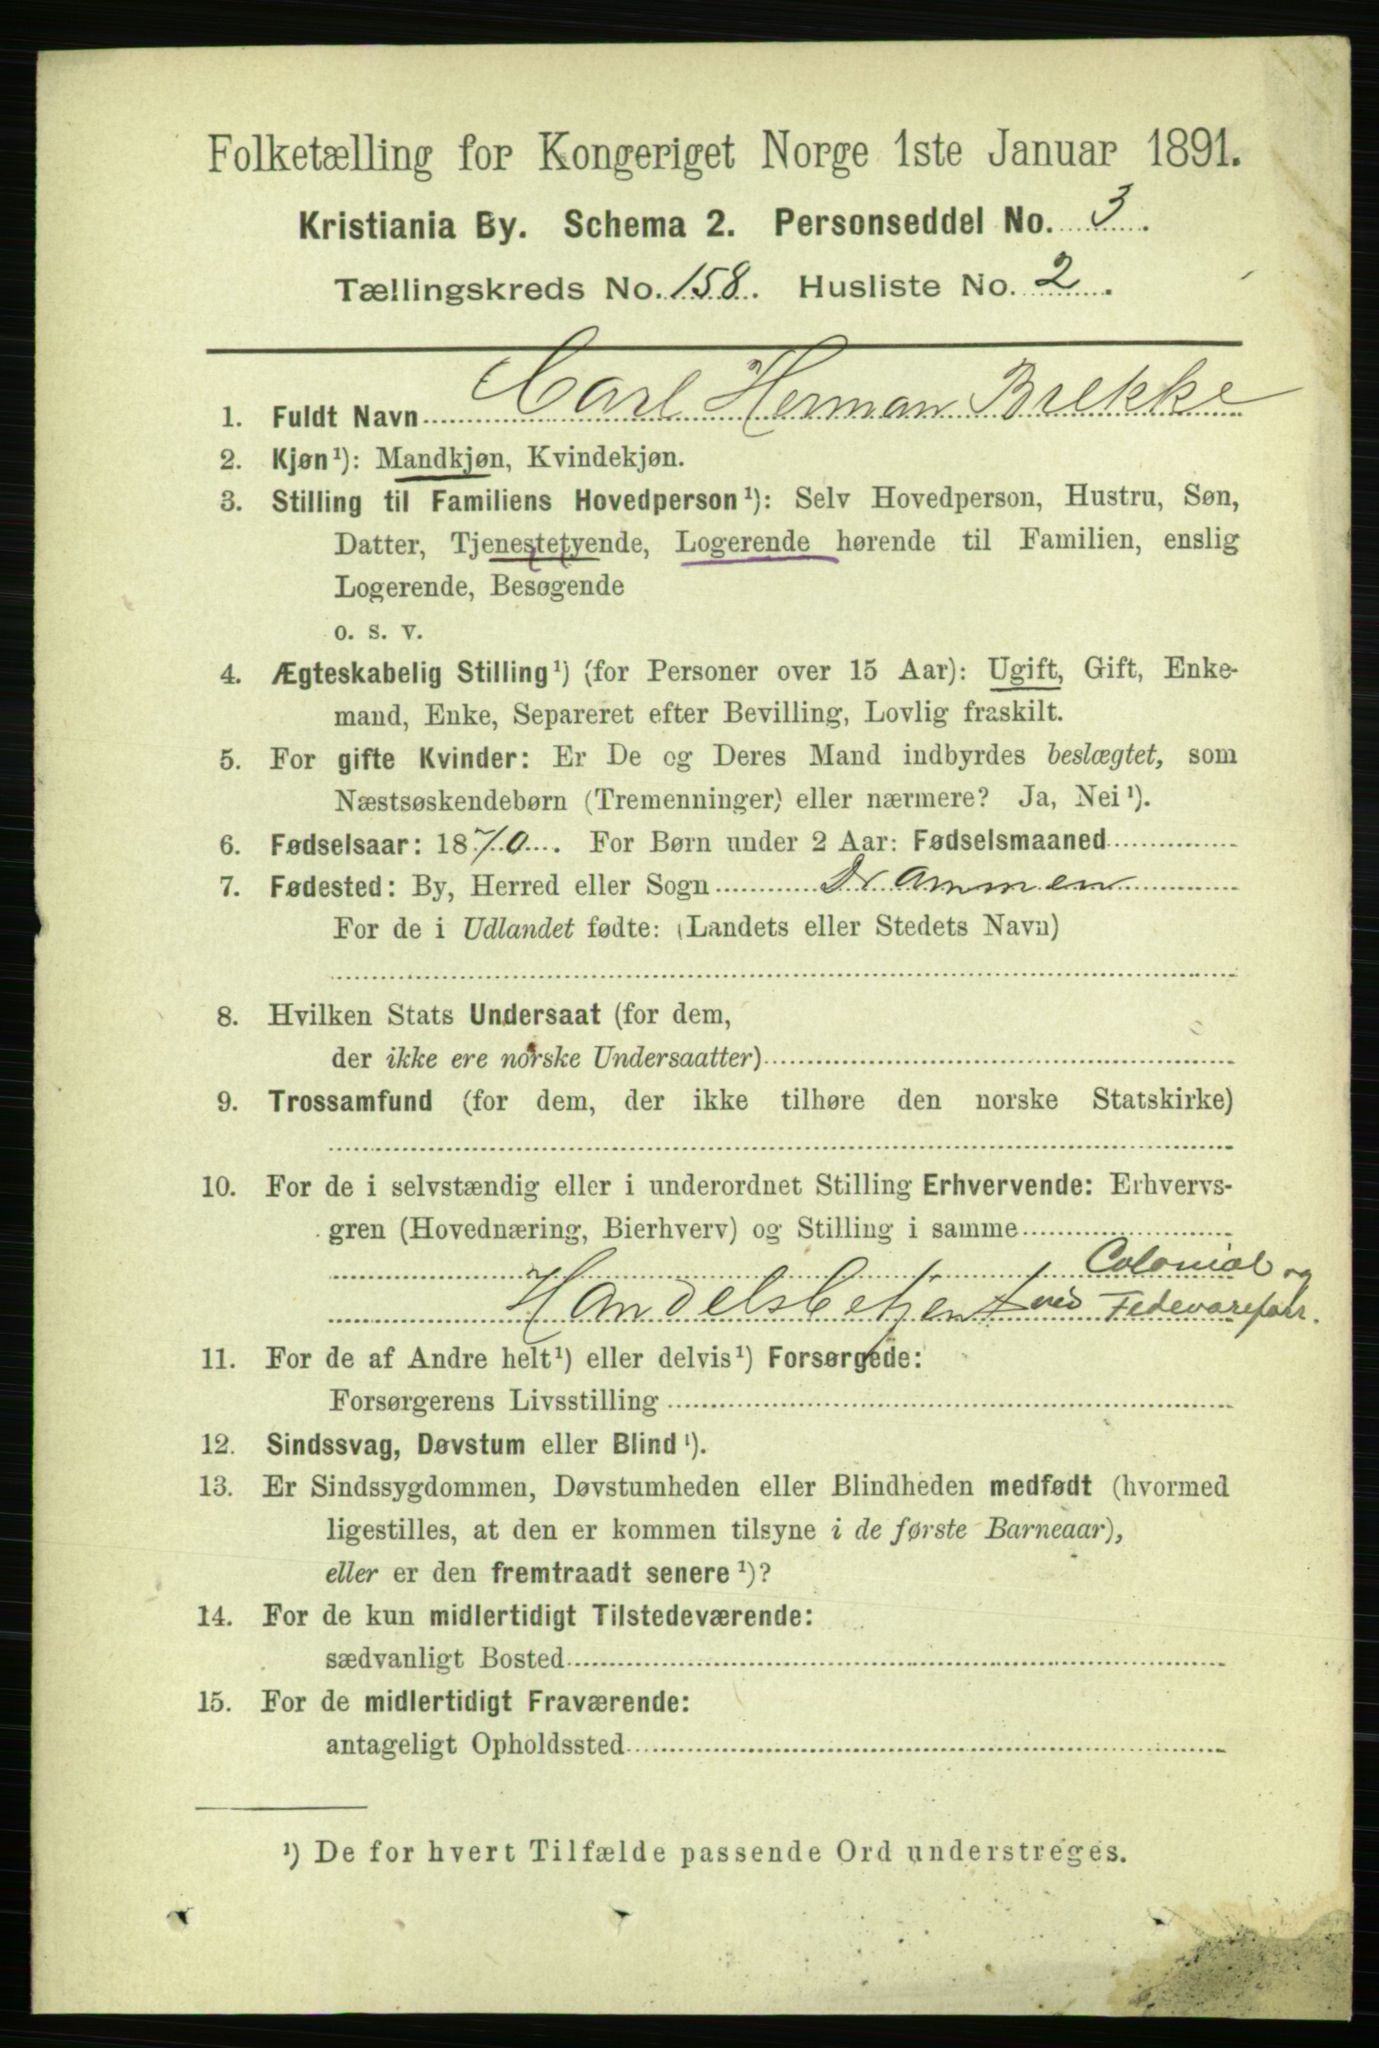 Folketælling for Kongeriget Norge 1ste Januar 1891.
Kristiania By. Schema 2. Personseddel No. 3.
Tællingskreds No. 158. Husliste No. 2.
1. Fuldt Navn Carl Herman Brekke
2. Kjøn¹): Mandkjøn, Kvindekjøn.
3. Stilling til Familiens Hovedperson¹): Selv Hovedperson, Hustru, Søn,
Datter, Tjenestetyende, Logerende hørende til Familien, enslig
Logerende, Besøgende
o. s. v.
4. Ægteskabelig Stilling¹) (for Personer over 15 Aar): Ugift, Gift, Enke-
mand, Enke, Separeret efter Bevilling, Lovlig fraskilt.
5. For gifte Kvinder: Er De og Deres Mand indbyrdes beslægtet, som
Næstsøskendebørn (Tremenninger) eller nærmere? Ja, Nei¹).
6. Fødselsaar: 1870. For Børn under 2 Aar: Fødselsmaaned
7. Fødested: By, Herred eller Sogn Drammen
For de i Udlandet fødte: (Landets eller Stedets Navn)
8. Hvilken Stats Undersaat (for dem,
der ikke ere norske Undersaatter)
9. Trossamfund (for dem, der ikke tilhøre den norske Statskirke)
10. For de i selvstændig eller i underordnet Stilling Erhvervende: Erhvervs-
gren (Hovednæring, Bierhverv) og Stilling i samme
Colonial og
Handelsbetjent ved Fedevareforr.
11. For de af Andre helt¹) eller delvis¹) Forsørgede:
Forsørgerens Livsstilling
12. Sindssvag, Døvstum eller Blind¹).
13. Er Sindssygdommen, Døvstumheden eller Blindheden medfødt (hvormed
ligestilles, at den er kommen tilsyne i de første Barneaar),
eller er den fremtraadt senere¹)?
14. For de kun midlertidigt Tilstedeværende:
sædvanligt Bosted
15. For de midlertidigt Fraværende:
antageligt Opholdssted
¹) De for hvert Tilfælde passende Ord understreges.